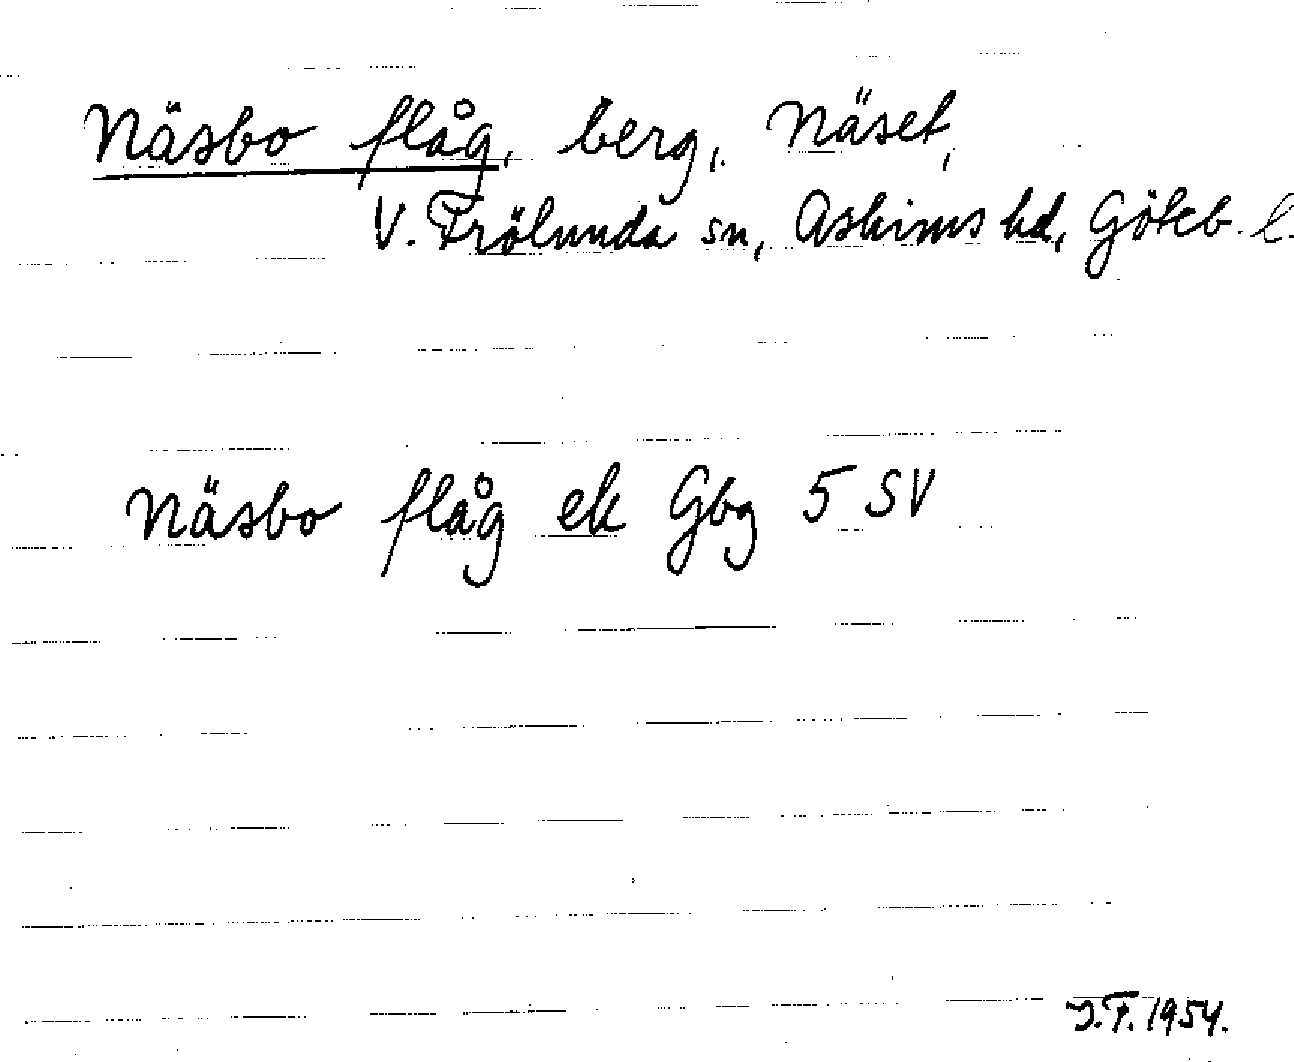 Näsbo flåg, berg, Näset,
V. Frölunda sn, Askims hd, Göteb. l.
Näsbo flåg ek Gbg 5 SV
J.F. 1954.